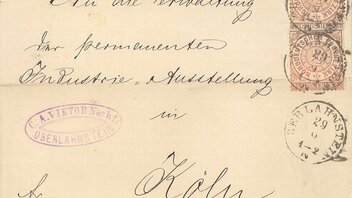 An die Verwaltung
der permanenten
Industrie-Ausstellung
in
Köln
C. A. VIETOR Nachf.
OBERLAHNSTEIN
OBERLAHNSTEIN
29
1-2
29